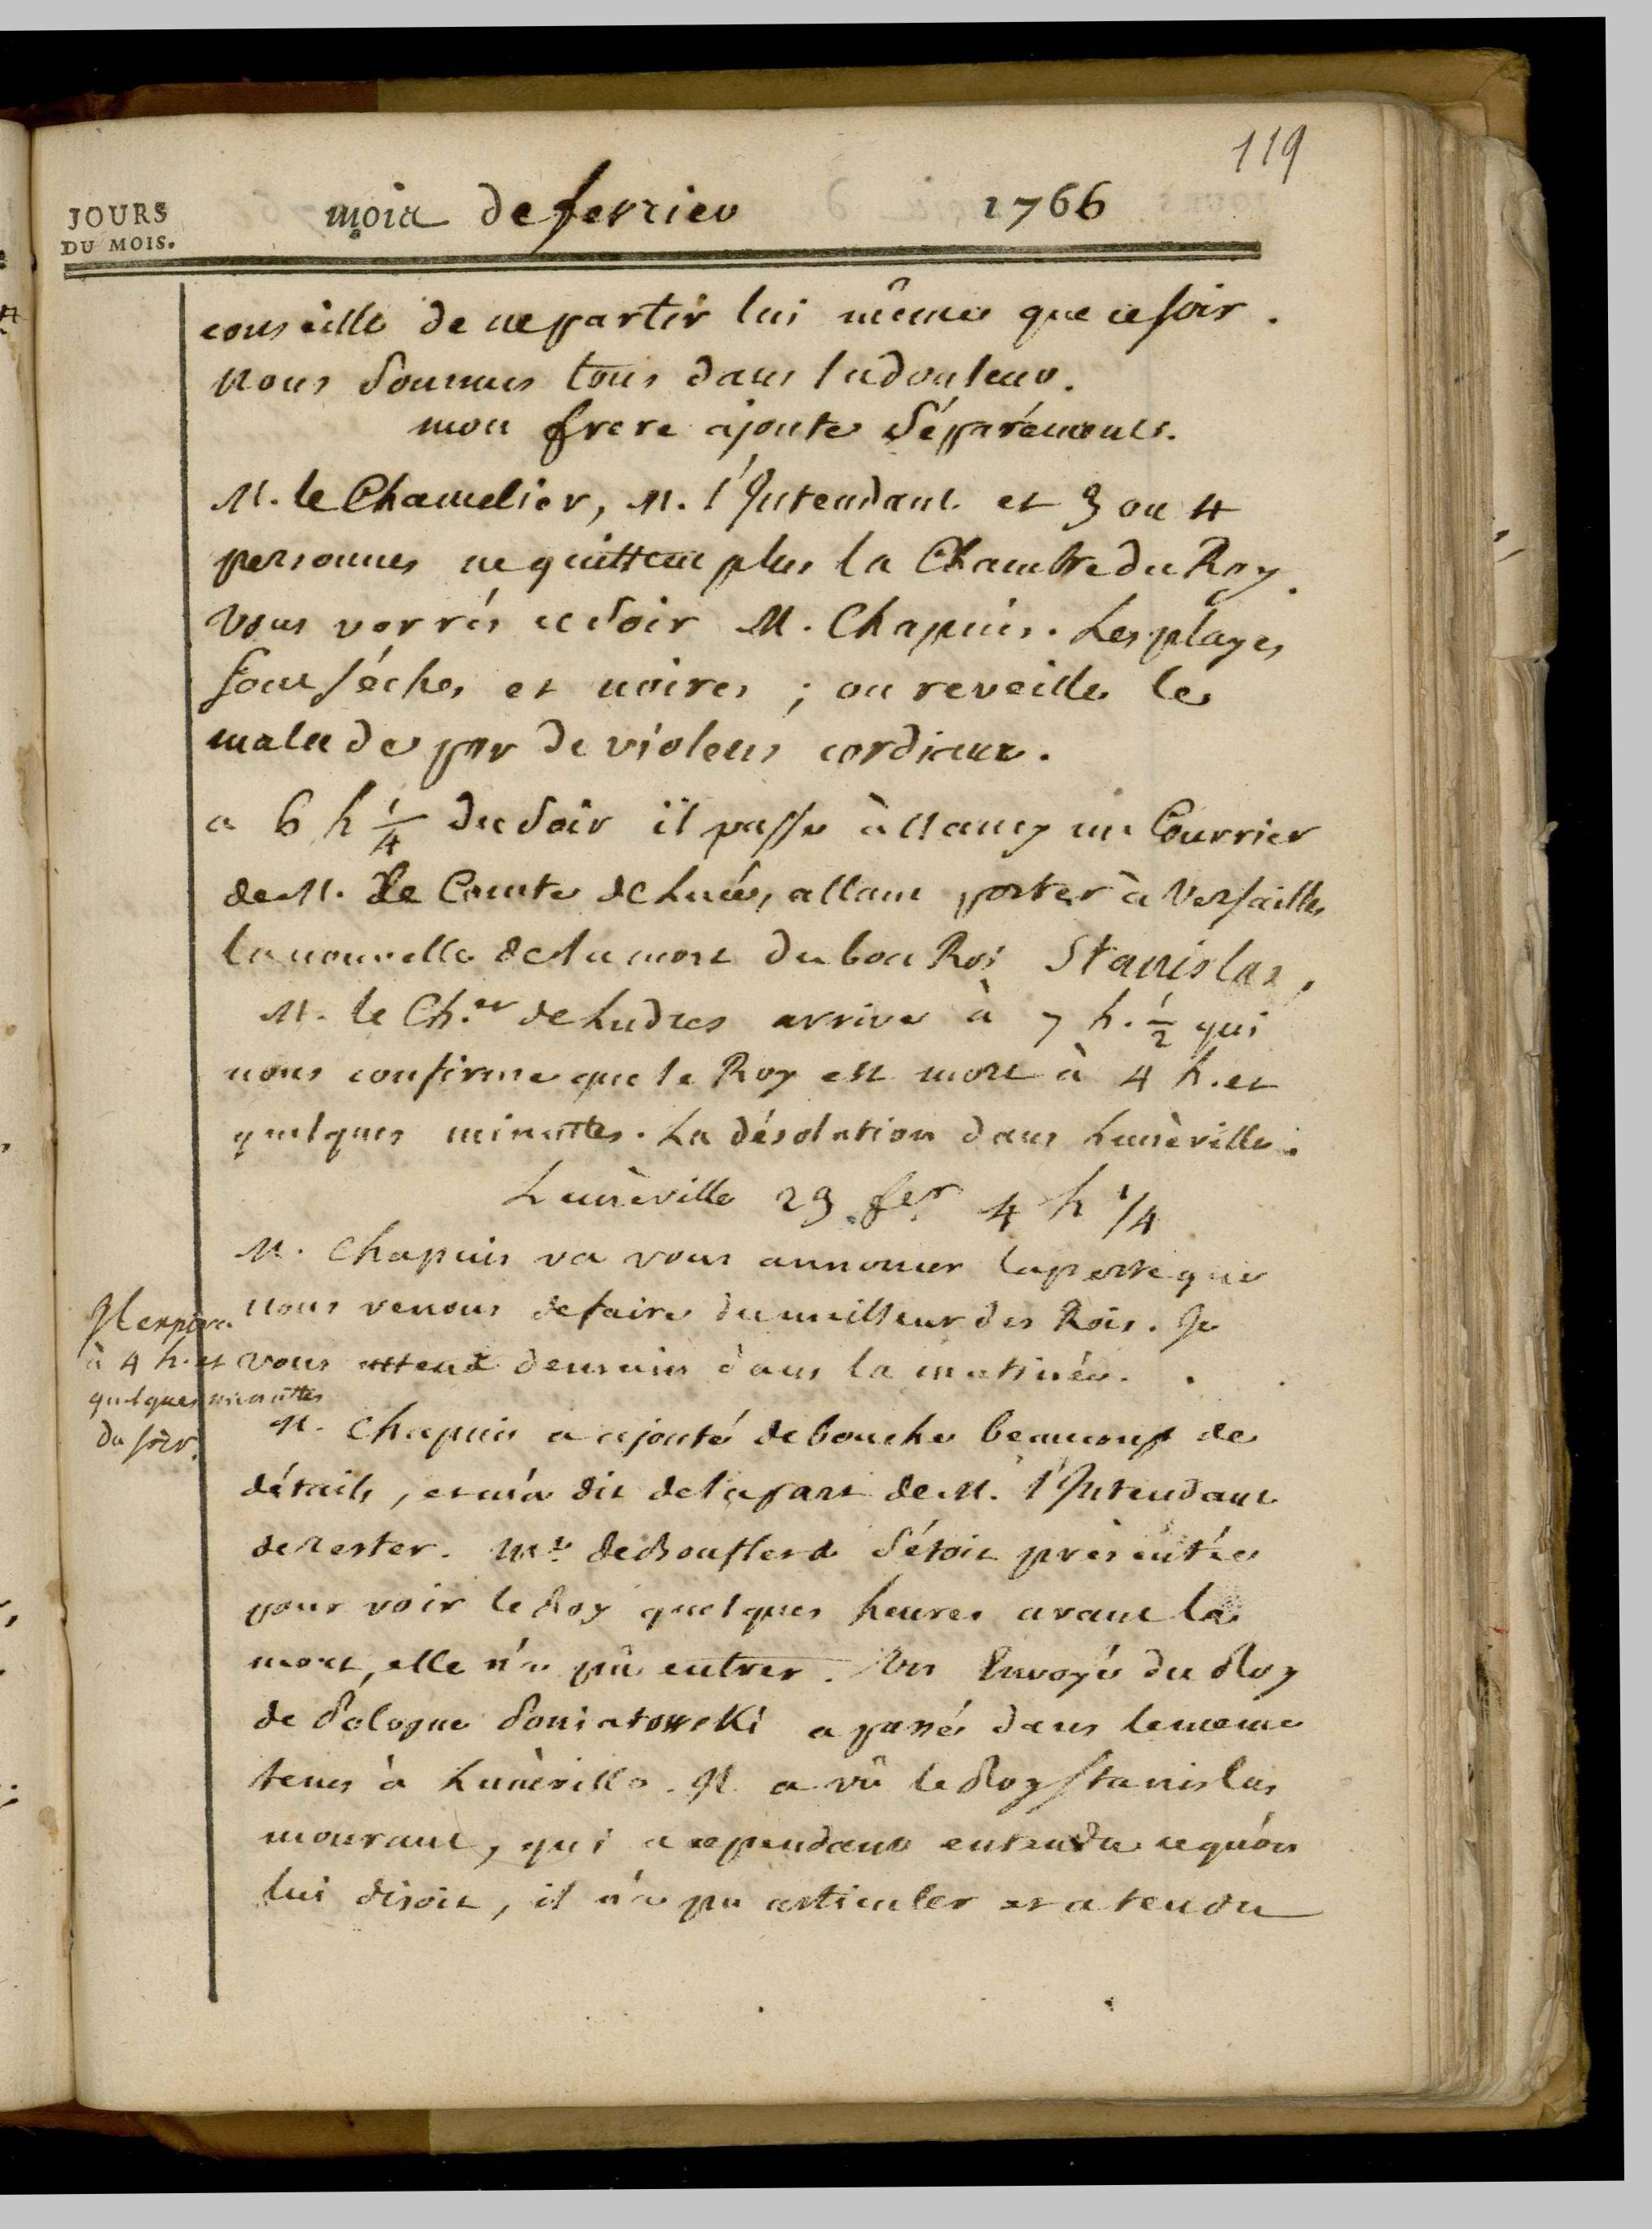 119
JOURS
DU MOIS.
mois de fevrier 1766
conseille de ne partir lui même que ce soir.
nous sommes tous dans la douleur.
mon frere ajoute séparéments.
M. le Chancelier, M. l'Intendant et 3 ou 4
personnes ne quittent plus la Chambre du Roy.
vous verrés ce soir M. Chapuis. Les playes
sont séches et noires ; on reveille le
malade par de violens cordiaux.
a 6 h 1/4 du soir il passe à Nancy un Courrier
de M. Le Comte de Lucée, allant porter à Versailles
la nouvelle de la mort du bon Roi Stanislas,
M. le Ch.er de Ludres arrive à 7 h. 1/2 qui
nous confirme que le Roy est mort à 4 h. et
quelques minuttes. La désolation dans Lunèville.
Lunèville 23 fer 4 h 1/4
M. Chapuis va vous annoncer la perte que
nous venons de faire du meilleur des Rois. Je
vous attend demain dans la matinée.
Il expira
à 4 h. et
quelques minuttes
du soir.
M. Chapuis a ajouté de bouche beaucoup de
détails, et m'a dit de la part de M. l'Intendant
de rester. Me de Bouflers s'étoit présentée
pour voir le Roy quelques heures avant la
mort, elle n'a pû entrer. Un Envoyé du Roy
de Pologne Poniatowski a passé dans le meme
tems à Lunèville. Il a vû le Roy Stanislas
mourant, qui a cependant entendu ce qu'on
lui disoit, il n'a pu articuler et a tendu